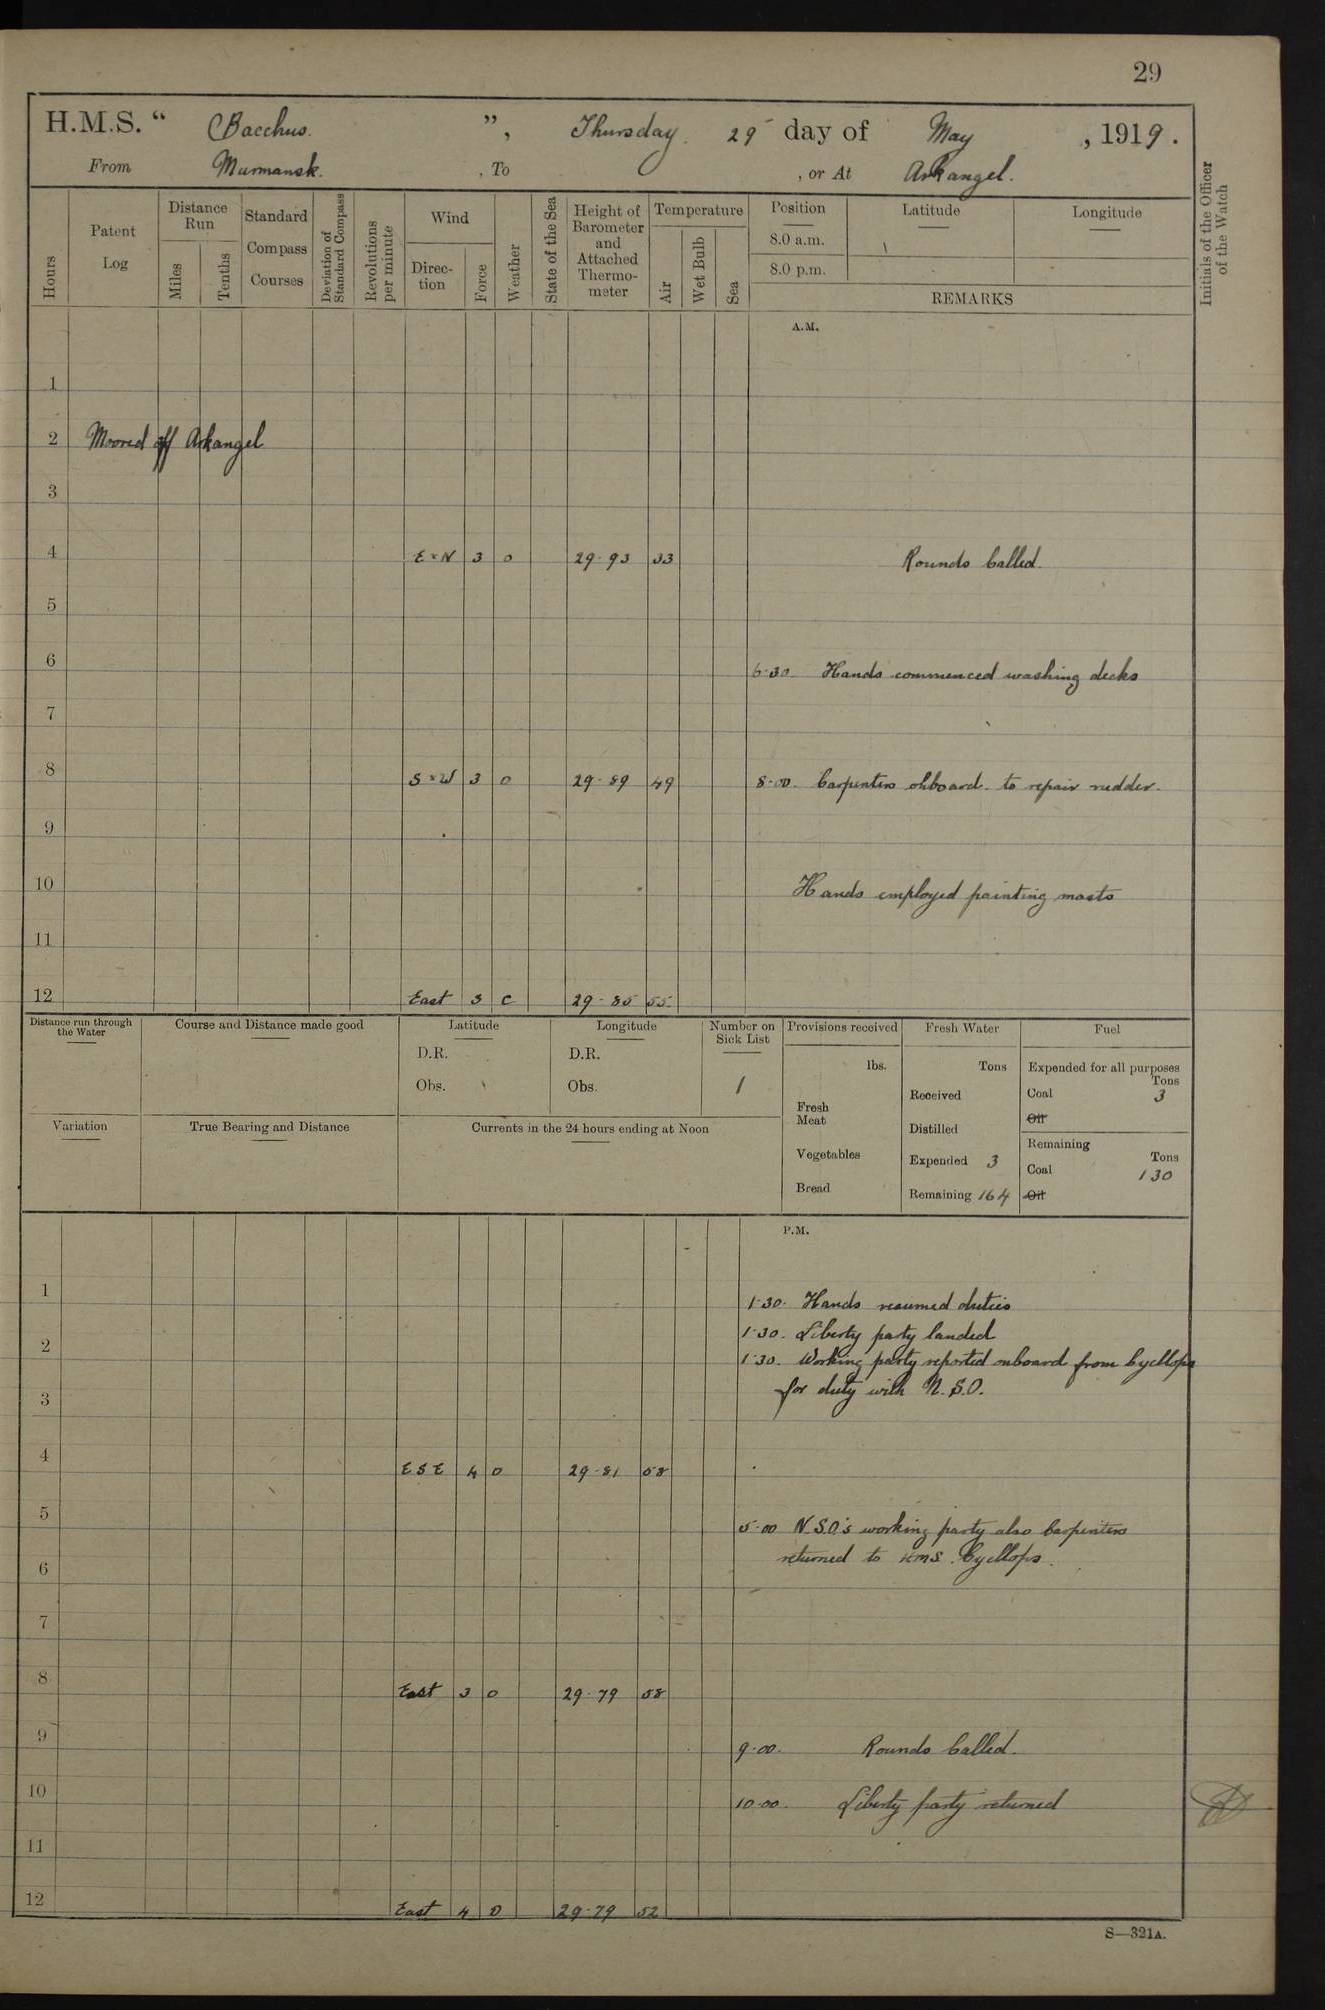 29
H.M.S. " Bacchus. ", Thursday. 29 day of May, 1919.
From Murmansk. , To , or At Arkangel.
Hours
Patent Log
Distance Run
Miles
Tenths
Standard Compass Courses
Deviation of Standard Compass
Revolutions per minute
Wind
Direc-tion
Force
Weather
State of the Sea
Height of Barometer and Attached Thermo-meter
Temperature
Air
Wet Bulb
Sea
Position
8.0 a.m.
8.0 p.m.
Latitude
Longitude
REMARKS
Initials of the Officer of the Watch
A.M.
1
2 Moored off Arkangel
3
4 E × N 3 o 29·93 33 Rounds Called.
5
6 6·30 Hands commenced washing decks
7
8 S × W 3 o 29·89 49 8·00. Carpenters onboard to repair rudder.
9
10 Hands employed painting masts
11
12 East 3 c 29·85 55
Distance run through the Water
Course and Distance made good
Latitude
D.R.
Obs.
Longitude
D.R.
Obs.
Number on Sick List
1
Provisions received
lbs.
Fresh Meat
Vegetables
Bread
Fresh Water
Tons
Received
Distilled
Expended 3
Remaining 164
Fuel
Expended for all purposes
Tons
Coal 3
Oil
Remaining
Tons
Coal 130
Oil
Variation
True Bearing and Distance
Currents in the 24 hours ending at Noon
P.M.
1 1·30. Hands resumed duties
2 1·30. Liberty party landed
1·30. Working party reported onboard from Cycllops
3 for duty with N.S.O.
4 ESE 4 o 29·81 58
5 5·00 N.S.O's working party also Carpenters
6 returned to HMS. Cycllops.
7
8 East 3 o 29·79 58
9 9·00. Rounds Called.
10 10·00. Liberty party returned
11
12 East 4 o 29·79 52
S—321A.